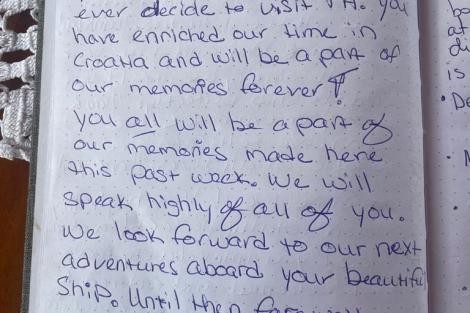 ever decide to visit VA. You
have enriched our time in
Croatia and will be a part of
our memories forever!
you all will be a part of
our memories made here
this past week. We will
speak highly of all of you.
We look forward to our next
adventures aboard your beautiful
Ship. Until then farewell
is